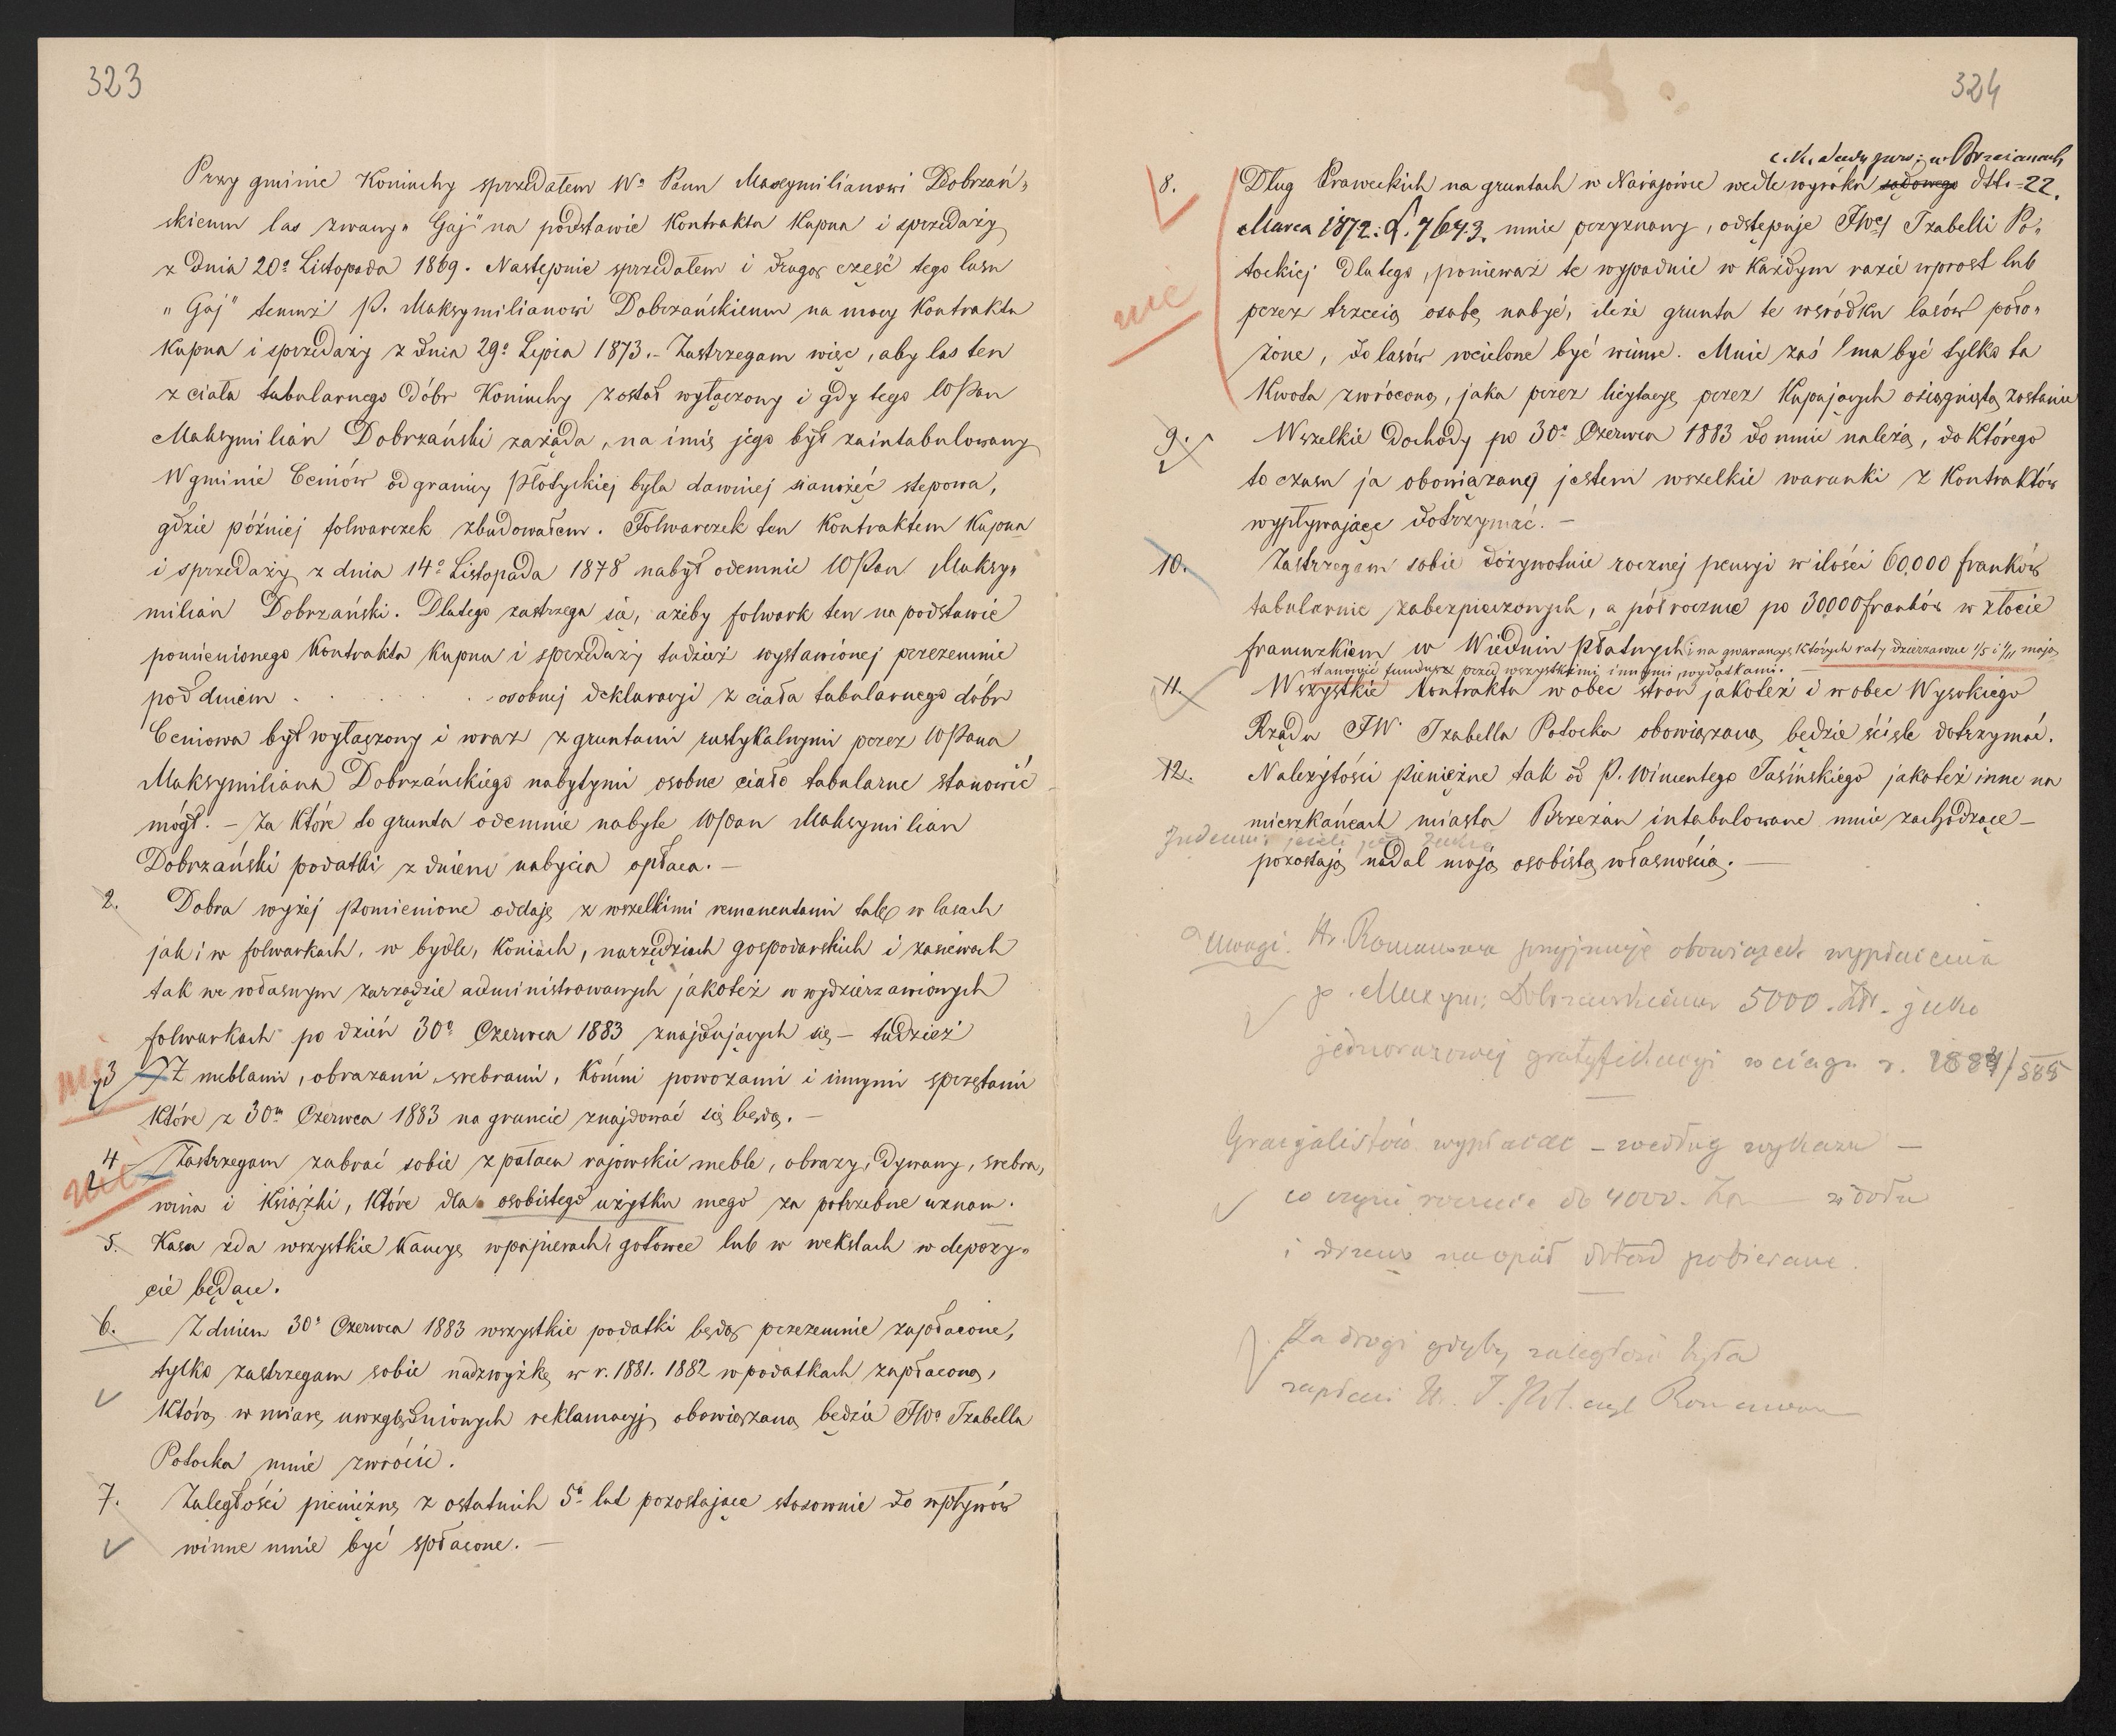 323
Przy gminie Koniuchy sprzedałem Wu Panu Maxymilianowi Dobrzań-
skiemu las zwany „Gaj" na podstawie Kontraktu Kupna i sprzedaży
z dnia 20o Listopada 1869. Następnie sprzedałem i drugą część tego lasu
„Gaj" temuż P. Maksymilianowi Dobrzańskiemu na mocy Kontraktu
Kupna i sprzedaży z dnia 29o Lipia 1873. – Zastrzegam więc, aby las ten
z ciała tabularnego dóbr Koniuchy został wyłączony i gdy tego WPan
Maksymilian Dobrzański zażąda, na imię jego był zaintabulowany
W gminie Ceniów od granicy Płotyckiej była dawniej sianożęć stepowa,
gdzie później folwarczek zbudowałem. Folwarczek ten Kontraktem Kupna
i sprzedaży z dnia 14o Listopada 1878 nabył odemnie WPan Maksy-
milian Dobrzański. Dlatego zastrzega się, ażeby folwark ten na podstawie
pomienionego Kontraktu Kupna i sprzedaży tudzież wystawionej przezemnie
pod dniem . . . . . osobnej deklaracyi z ciała tabularnego dóbr
Ceniowa był wyłączony i wraz z gruntami rustykalnymi przez WPana
Maksymiliana Dobrzańskiego nabytymi osobne ciało tabularne stanowić
mógł. – Za które to grunta odemnie nabyte WPan Maksymilian
Dobrzański podatki z dniem nabycia opłaca. –
2. Dobra wyżej pomienione oddaję z wszelkimi remanentami tak w lasach
jak i w folwarkach, w bydle, koniach, narzędziach gospodarskich i zasiewach
tak we własnym zarządzie administrowanych jakoteż w wydzierzawionych
folwarkach po dzień 30o Czerwca 1883 znajdujących się – tudzież
nie
3 Z meblami, obrazami, srebrami, Końmi powozami i innymi sprzętami
Które z 30m Czerwca 1883 na gruncie znajdować się będą. –
4 Zastrzegam zabrać sobie z pałacu rajowskie meble, obrazy, Dywany, srebra,
nie
wina i Książki, Które dla osobistego użytku mego za potrzebne uznam.
5. Kasa zda wszystkie Kaucye w papierach, gotowce lub w wekslach w depozy-
cie będące.
6. Z dniem 30o Czerwca 1883 wszystkie podatki będą przezemnie zapłacone,
tylko zastrzegam sobie nadzwyżkę w r. 1881. 1882 w podatkach zapłaconą,
Którą w miarę uwzględnionych reklamacyj obowiązaną będzie JWa Izabella
Potocka mnie zwrócić.
7. Zaległości pieniężne z ostatnich 5u lat pozostające stosownie do wpływów
winne mnie być spłacone. –
324
c.k. Sądu pow: w Brzeżanach
8. Dług Praweckich na gruntach w Narajowie wedle wyroku sądowego dtto 22.
Marca 1872. L. 7643. mnie przyznany, odstępuję JWej Izabelli Po-
tockiej dlatego, ponieważ te wypadnie w Każdym razie wprost lub
nie
przez trzecią osobę nabyć, ileże grunta te wśródku lasów poło-
żone, do lasów wcielone być winne. Mnie zaś ma być tylko ta
Kwota zwróconą, jaka przez licytacyę przez Kupujących osiągniętą zostanie
9. Wszelkie Dochody po 30o Czerwca 1883 do mnie należą, do Którego
to czasu ja obowiązany jestem wszelkie warunki z Kontraktów
wypływające dotrzymać. –
10. Zastrzegam sobie dożywotnie rocznej pensyi w ilości 60.000 franków
tabularnie zabezpieczonych, a półrocznie po 30000 franków w złocie
francuzkiem w Wiedniu płatnych i na gwarancyę Których raty dzierzawne 1/5 i 1/11 mają
stanowić fundusz przed wszystkimi innymi wydatkami.
11. Wszystkie Kontrakta wobec stron jakoteż i wobec Wysokiego
Rządu JW. Izabella Potocka obowiązaną będzie ściśle dotrzymać.
12. Należytości pieniężne tak od P. Wincentego Jasińskiego jakoteż inne na
mieszkańcach miasta Brzeżan intabulowane mnie zachodzące –
pozostają nadal moją osobistą własnością. –
Uwagi. Hr. Romanowa przyjmuje obowiązek wypłacenia
p. Maxym: Dobrzańskiemu 5000. Złr. jako
jednorazowej gratyfikacyi w ciągu r. 1884/885
Gracyalistów wypłacać – według wykazu –
co czyni rocznie do 4000. Złr –
i drzewo na opał dotąd pobierane.
Za drogi gdyby zaległość była
zapłaci Hr. J. Pot. czyl Romanowa